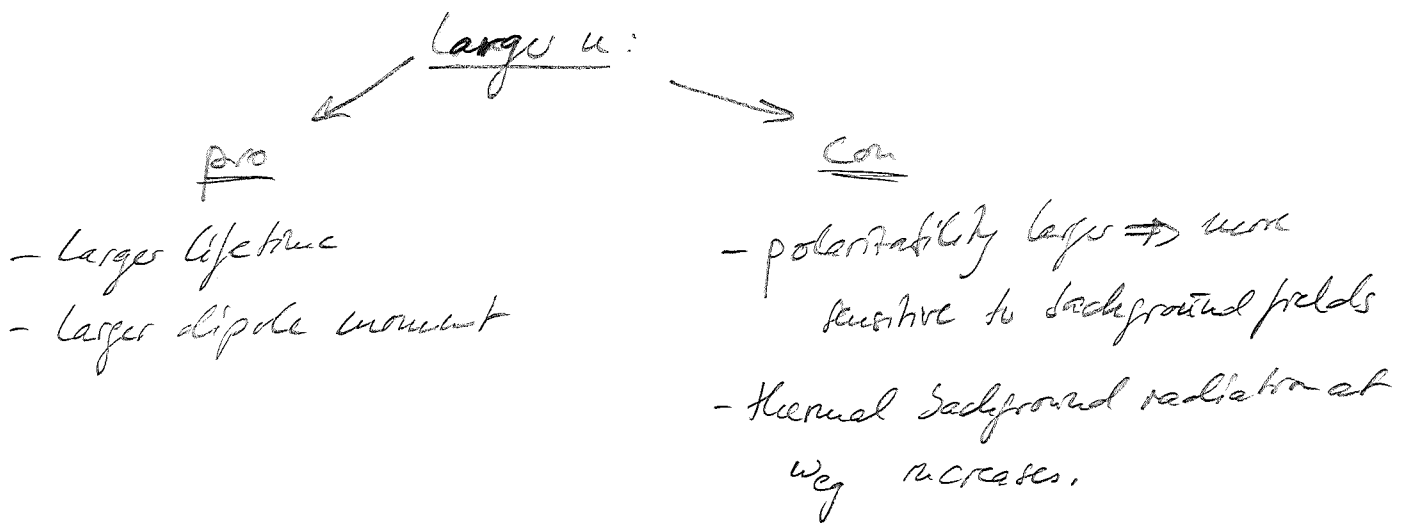 Larger n:
pro
- Larger lifetime
- Larger dipole moment
Con
- polarizability larger ⇒ more
sensitive to background fields
- thermal background radiation at
ω_eg increases.